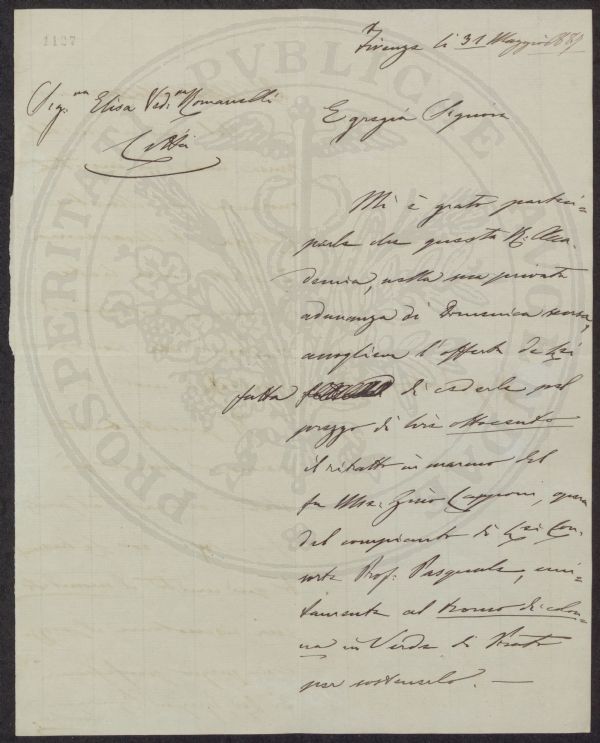 1127
Firenze li 31 Maggio 1889
Sig.ra Elisa Ved.va Romanelli
Città
Egregia Signora
Mi è grato parteci=
parle che questa R: Acca=
demia, nella sua privata
adunanza di Domenica scorsa,
accoglieva l'offerta da Lei
fatta di cederle pel
prezzo di lire ottocento
il ritratto in marmo del
fu Mse: Gino Capponi, opera
del compianto di Lei Con=
sorte Prof: Pasquale, uni=
tamente al tronco di colon=
na in Verde di Prato
per sostenerlo. —
PROSPERITATI PVBLICAE AVGENDAE